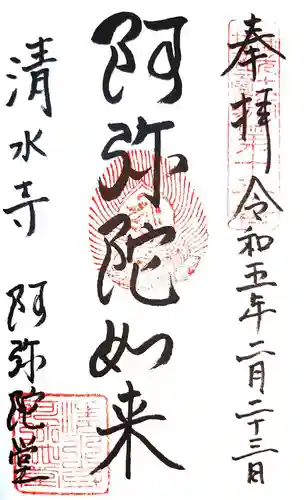 奉拝 令和五年二月二十三日
阿弥陀如来
清水寺 阿弥陀堂